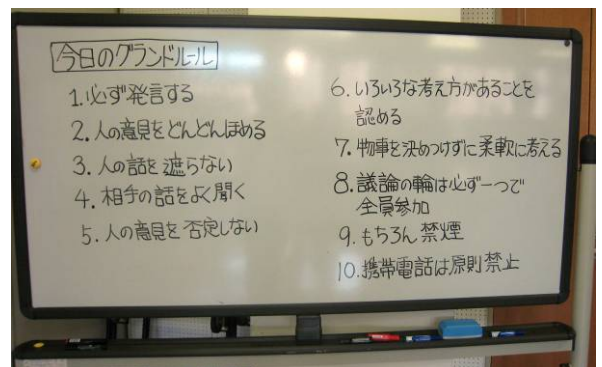 今日のグランドルール
1.必ず発言する
2.人の意見をどんどんほめる
3.人の話を遮らない
4.相手の話をよく聞く
5.人の意見を否定しない
6.いろいろな考え方があることを
認める
7.物事を決めつけずに柔軟に考える
8.議論の輪は必ず一つで
全員参加
9.もちろん禁煙
10.携帯電話は原則禁止